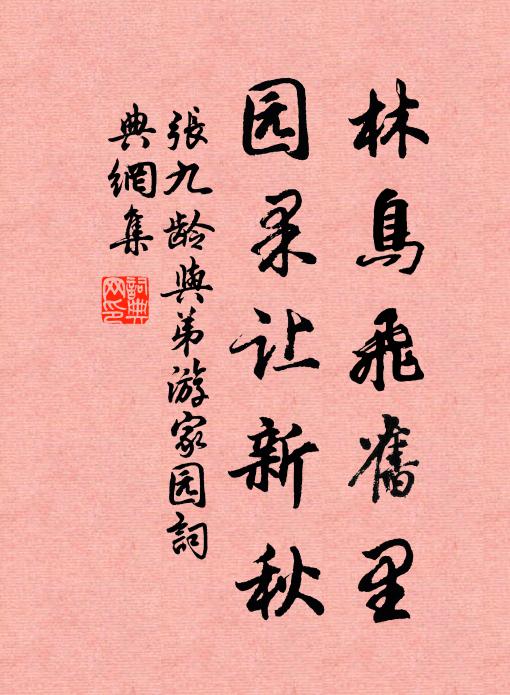 林鳥飛舊里
园果让新秋
張九龄與弟游家园詞
典網集
詞典
网印